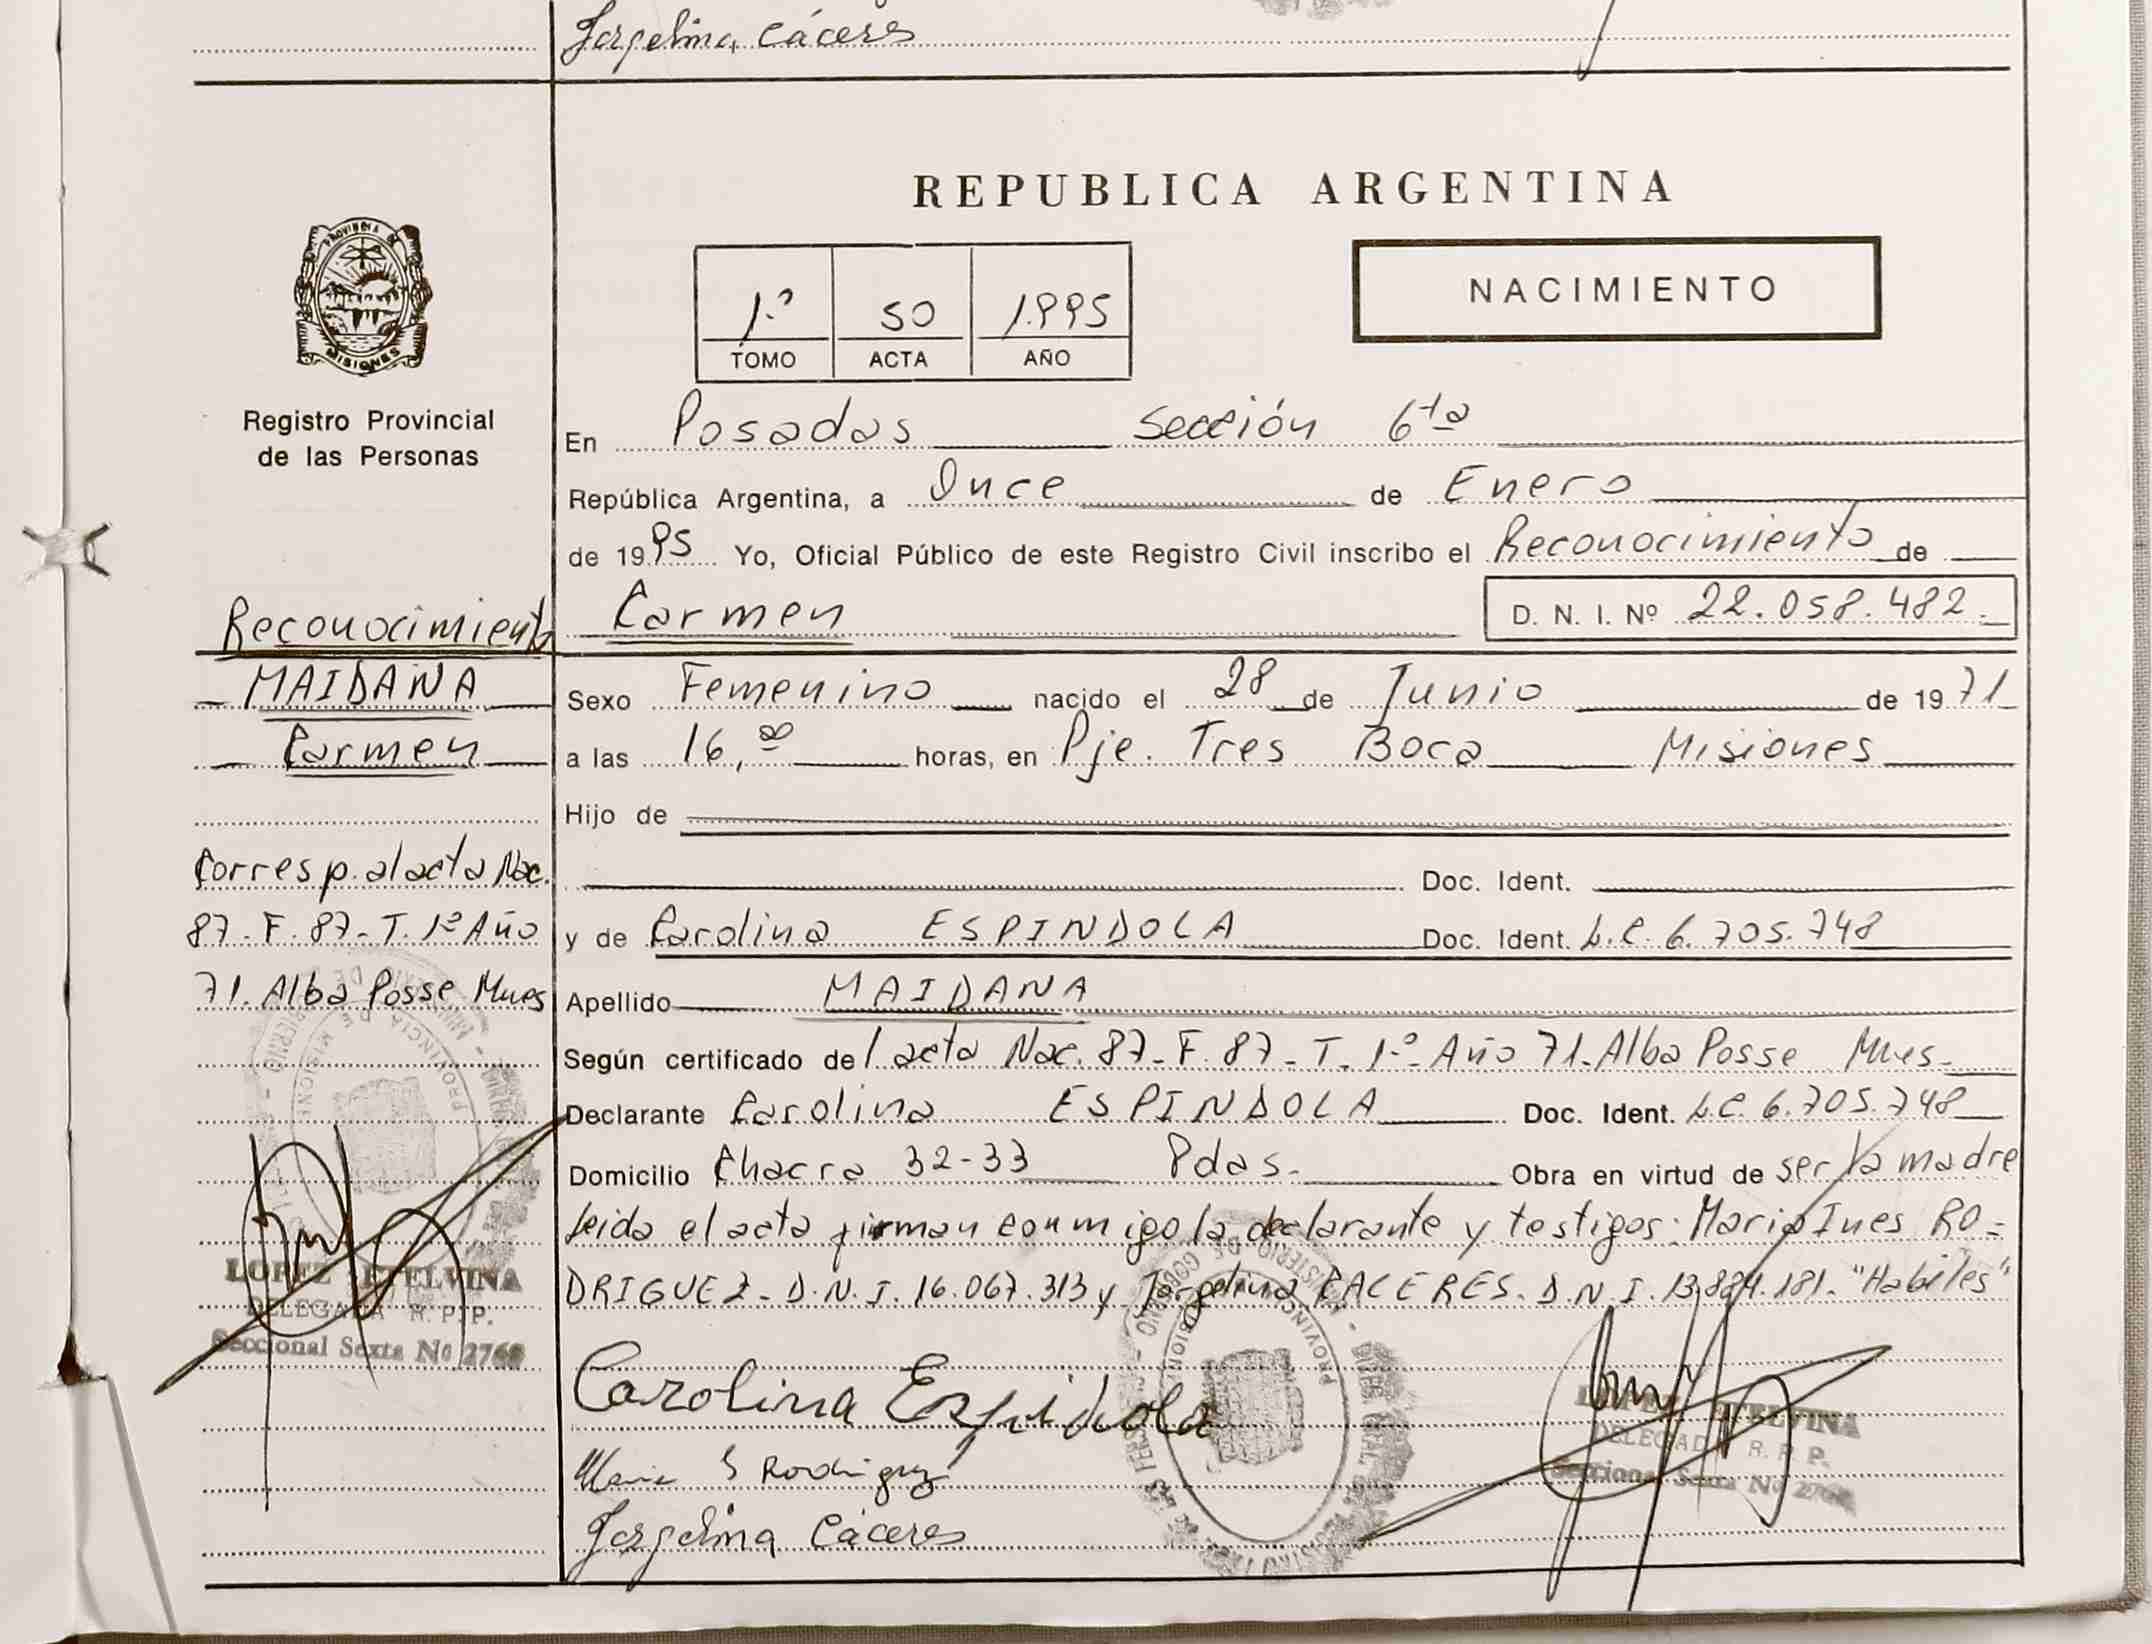 Jorgelina Cáceres
REPUBLICA ARGENTINA
PROVINCIA DE
MISIONES
1.º 50 1.995
TOMO ACTA AÑO
NACIMIENTO
Registro Provincial
de las Personas
En Posadas Sección 6ta
República Argentina, a Once de Enero
de 1995 Yo, Oficial Público de este Registro Civil inscribo el Reconocimiento de
Carmen D. N. I. Nº 22.058.482.-
Sexo Femenino nacido el 28 de Junio de 1971
a las 16,00 horas, en Pje. Tres Boca Misiones
Hijo de
Doc. Ident.
y de Carolina ESPINDOLA Doc. Ident. L.C. 6.705.748
Apellido MAIDANA
Según certificado del acta Nac. 87-F. 87-T. 1º- Año 71. Alba Posse Mnes-
Declarante Carolina ESPINDOLA Doc. Ident. L.C. 6.705.748
Domicilio Chacra 32-33 Pdas.- Obra en virtud de ser la madre
Leida el acta firman conmigo la declarante y testigos: Maria Ines RO=
DRIGUEZ- D.N.I. 16.067.313 y Jorgelina CACERES. D.N.I. 13.884.181. "Habiles"
Carolina Espindola
Maria I Rodriguez
Jorgelina Cáceres
LOPEZ ETELVINA
DELEGADA R. P. P.
Seccional Sexta Nº
Reconocimiento
MAIDANA
Carmen
Corresp. al acta Nac.
87-F. 87-T. 1º Año
71. Alba Posse Mnes
PROVINCIA DE MISIONES
LOPEZ ETELVINA
DELEGADA R. P. P.
Seccional Sexta Nº